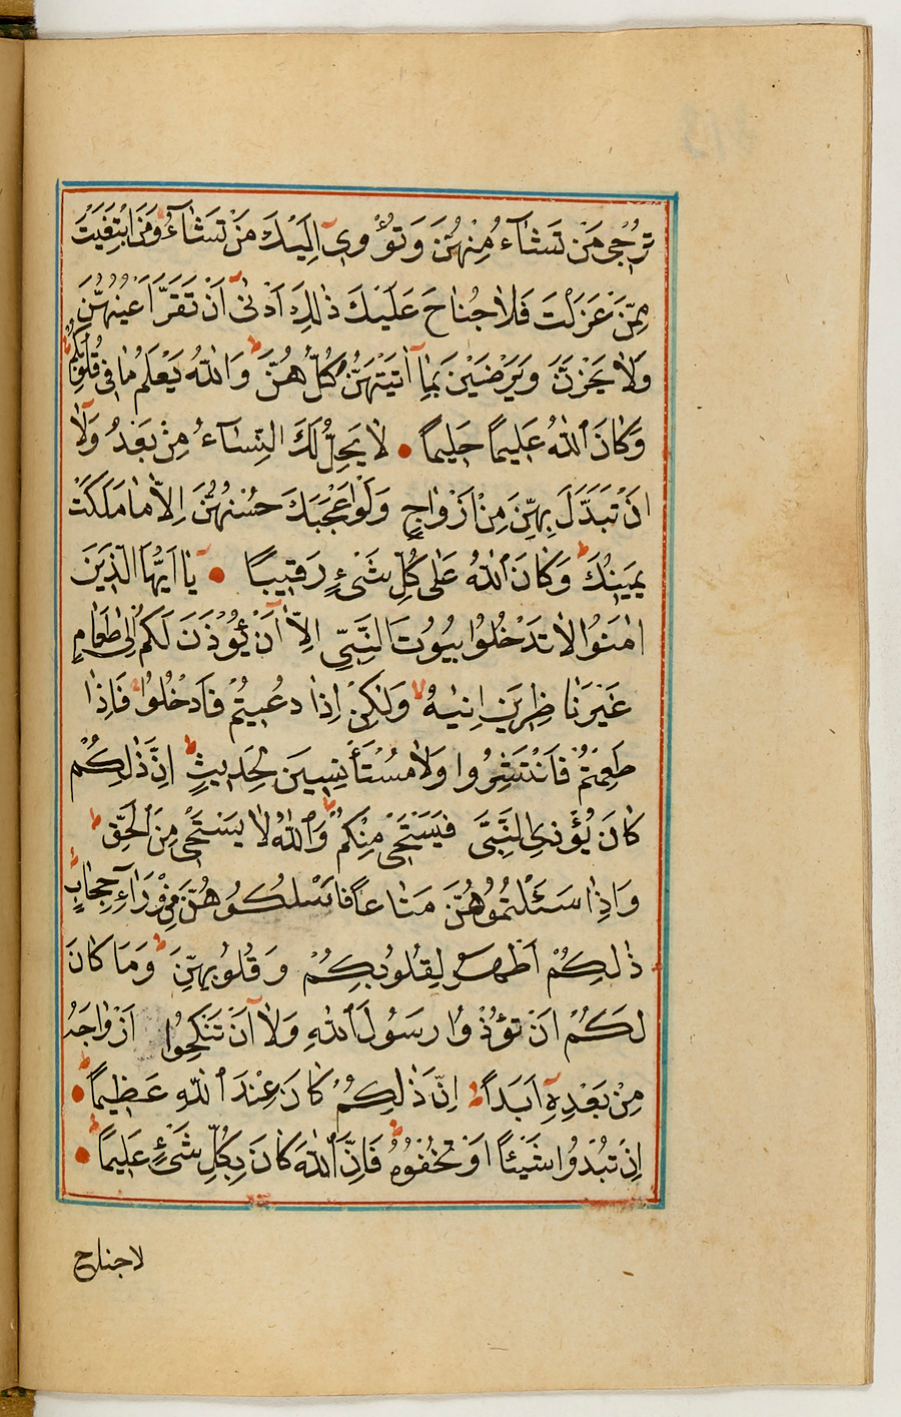 تُرْجٖى مَنْ تَشَٓاءُ مِنْهُنَّ وَتُؤْوٖٓى اِلَيْكَ مَنْ تَشَٓاءُ وَمَنِ ابْتَغَيْتَ
مِمَّنْ عَزَلْتَ فَلَا جُنَاحَ عَلَيْكَ ذٰلِكَ اَدْنٰٓى اَنْ تَقَرَّ اَعْيُنُهُنَّ
وَلَا يَحْزَنَّ وَيَرْضَيْنَ بِمَٓا اٰتَيْتَهُنَّ كُلُّهُنَّ ط وَاللّٰهُ يَعْلَمُ مَا فٖى قُلُوبِكُمْ ط
وَكَانَ اللّٰهُ عَلٖيمًا حَلٖيمًا • لَا يَحِلُّ لَكَ النِّسَٓاءُ مِنْ بَعْدُ وَلَٓا
اَنْ تَبَدَّلَ بِهِنَّ مِنْ اَزْوَاجٍ وَلَوْ اَعْجَبَكَ حُسْنُهُنَّ اِلَّا مَا مَلَكَتْ
يَمٖينُكَ ط وَكَانَ اللّٰهُ عَلٰى كُلِّ شَىْءٍ رَقٖيبًا • يَٓا اَيُّهَا الَّذٖينَ
اٰمَنُوا لَا تَدْخُلُوا بُيُوتَ النَّبِىِّ اِلَّٓا اَنْ يُؤْذَنَ لَكُمْ اِلٰى طَعَامٍ
غَيْرَ نَاظِرٖينَ اِنٰيهُ لا وَلٰكِنْ اِذَا دُعٖيتُمْ فَادْخُلُوا فَاِذَا
طَعِمْتُمْ فَانْتَشِرُوا وَلَا مُسْتَأْنِسٖينَ لِحَدٖيثٍ ط اِنَّ ذٰلِكُمْ
كَانَ يُؤْذِى النَّبِىَّ فَيَسْتَحْيٖ مِنْكُمْ ز وَاللّٰهُ لَا يَسْتَحْيٖ مِنَ الْحَقِّ ط
وَاِذَا سَئَلْتُمُوهُنَّ مَتَاعًا فَاسْئَلُوهُنَّ مِنْ وَرَٓاءِ حِجَابٍ ط
ذٰلِكُمْ اَطْهَرُ لِقُلُوبِكُمْ وَقُلُوبِهِنَّ ط وَمَا كَانَ
لَكُمْ اَنْ تُؤْذُوا رَسُولَ اللّٰهِ وَلَٓا اَنْ تَنْكِحُٓوا اَزْوَاجَهُ
مِنْ بَعْدِهٖٓ اَبَدًا ط اِنَّ ذٰلِكُمْ كَانَ عِنْدَ اللّٰهِ عَظٖيمًا •
اِنْ تُبْدُوا شَيْئًا اَوْ تُخْفُوهُ فَاِنَّ اللّٰهَ كَانَ بِكُلِّ شَىْءٍ عَلٖيمًا •
لا جناح